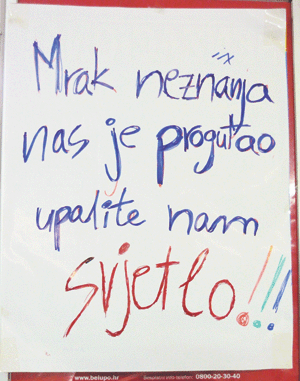 Mrak neznanja
nas je progutao
upalite nam
svjetlo!!!
www.belupo.hr 0800-20-30-40